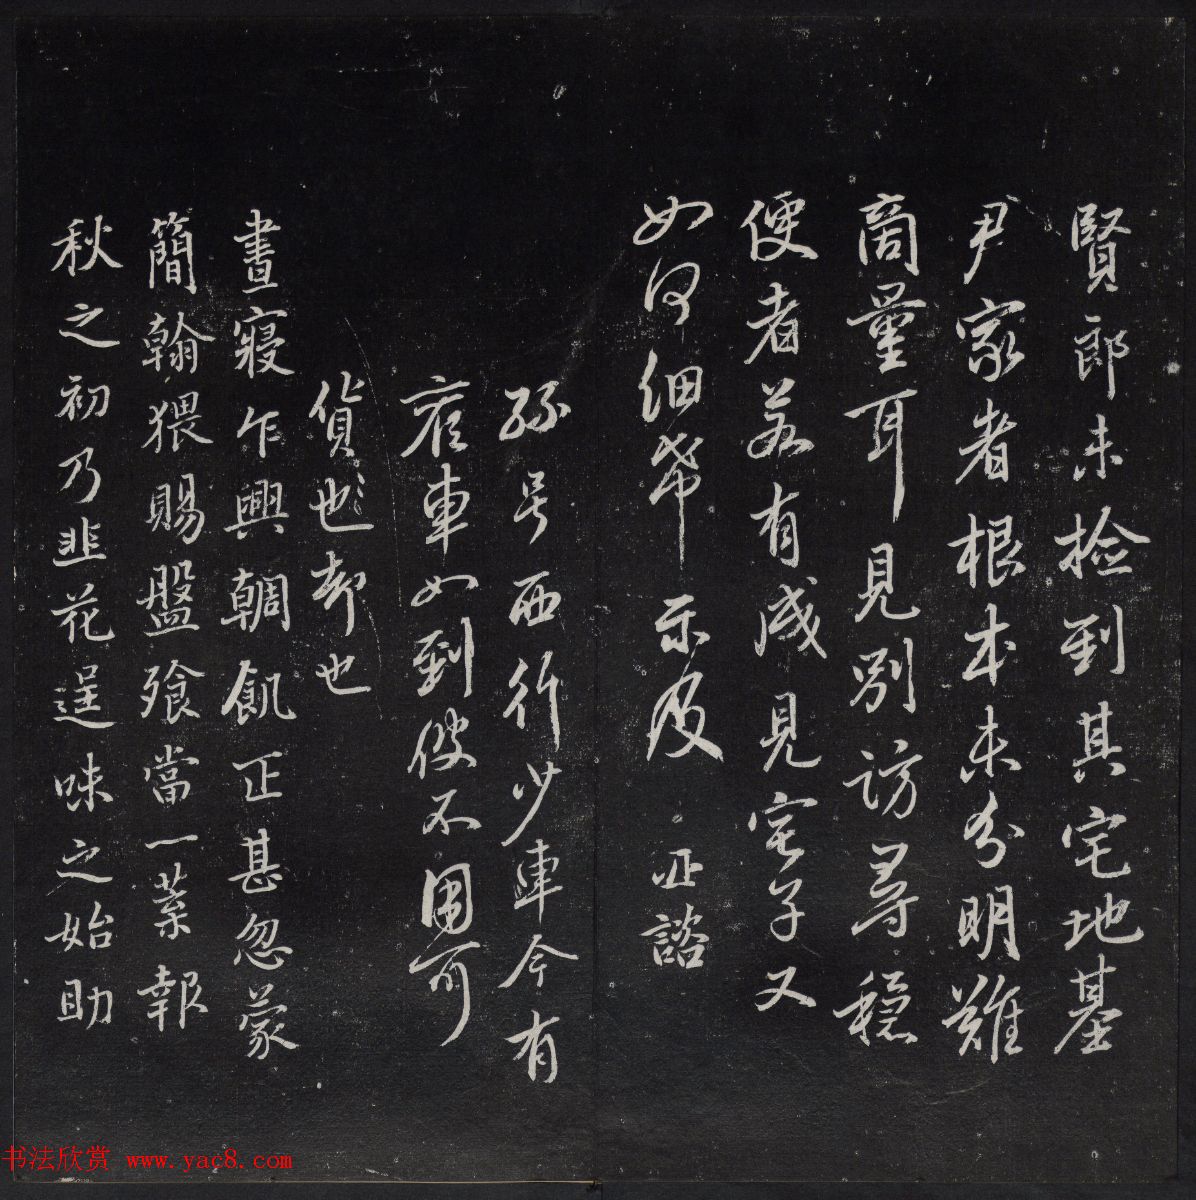 賢郎未撿到其宅地基
尹家者根本未分明難
商量耳見別訪尋穩
便者若有成見宅子又
如何細希示及 諮
号西行少車今有
雇車如到彼不用可
貨也却也
晝寢乍興輖飢正甚忽蒙
簡翰猥賜盤飧當一葉報
秋之初乃韭花逞味之始助
书法欣赏 www.yac8.com